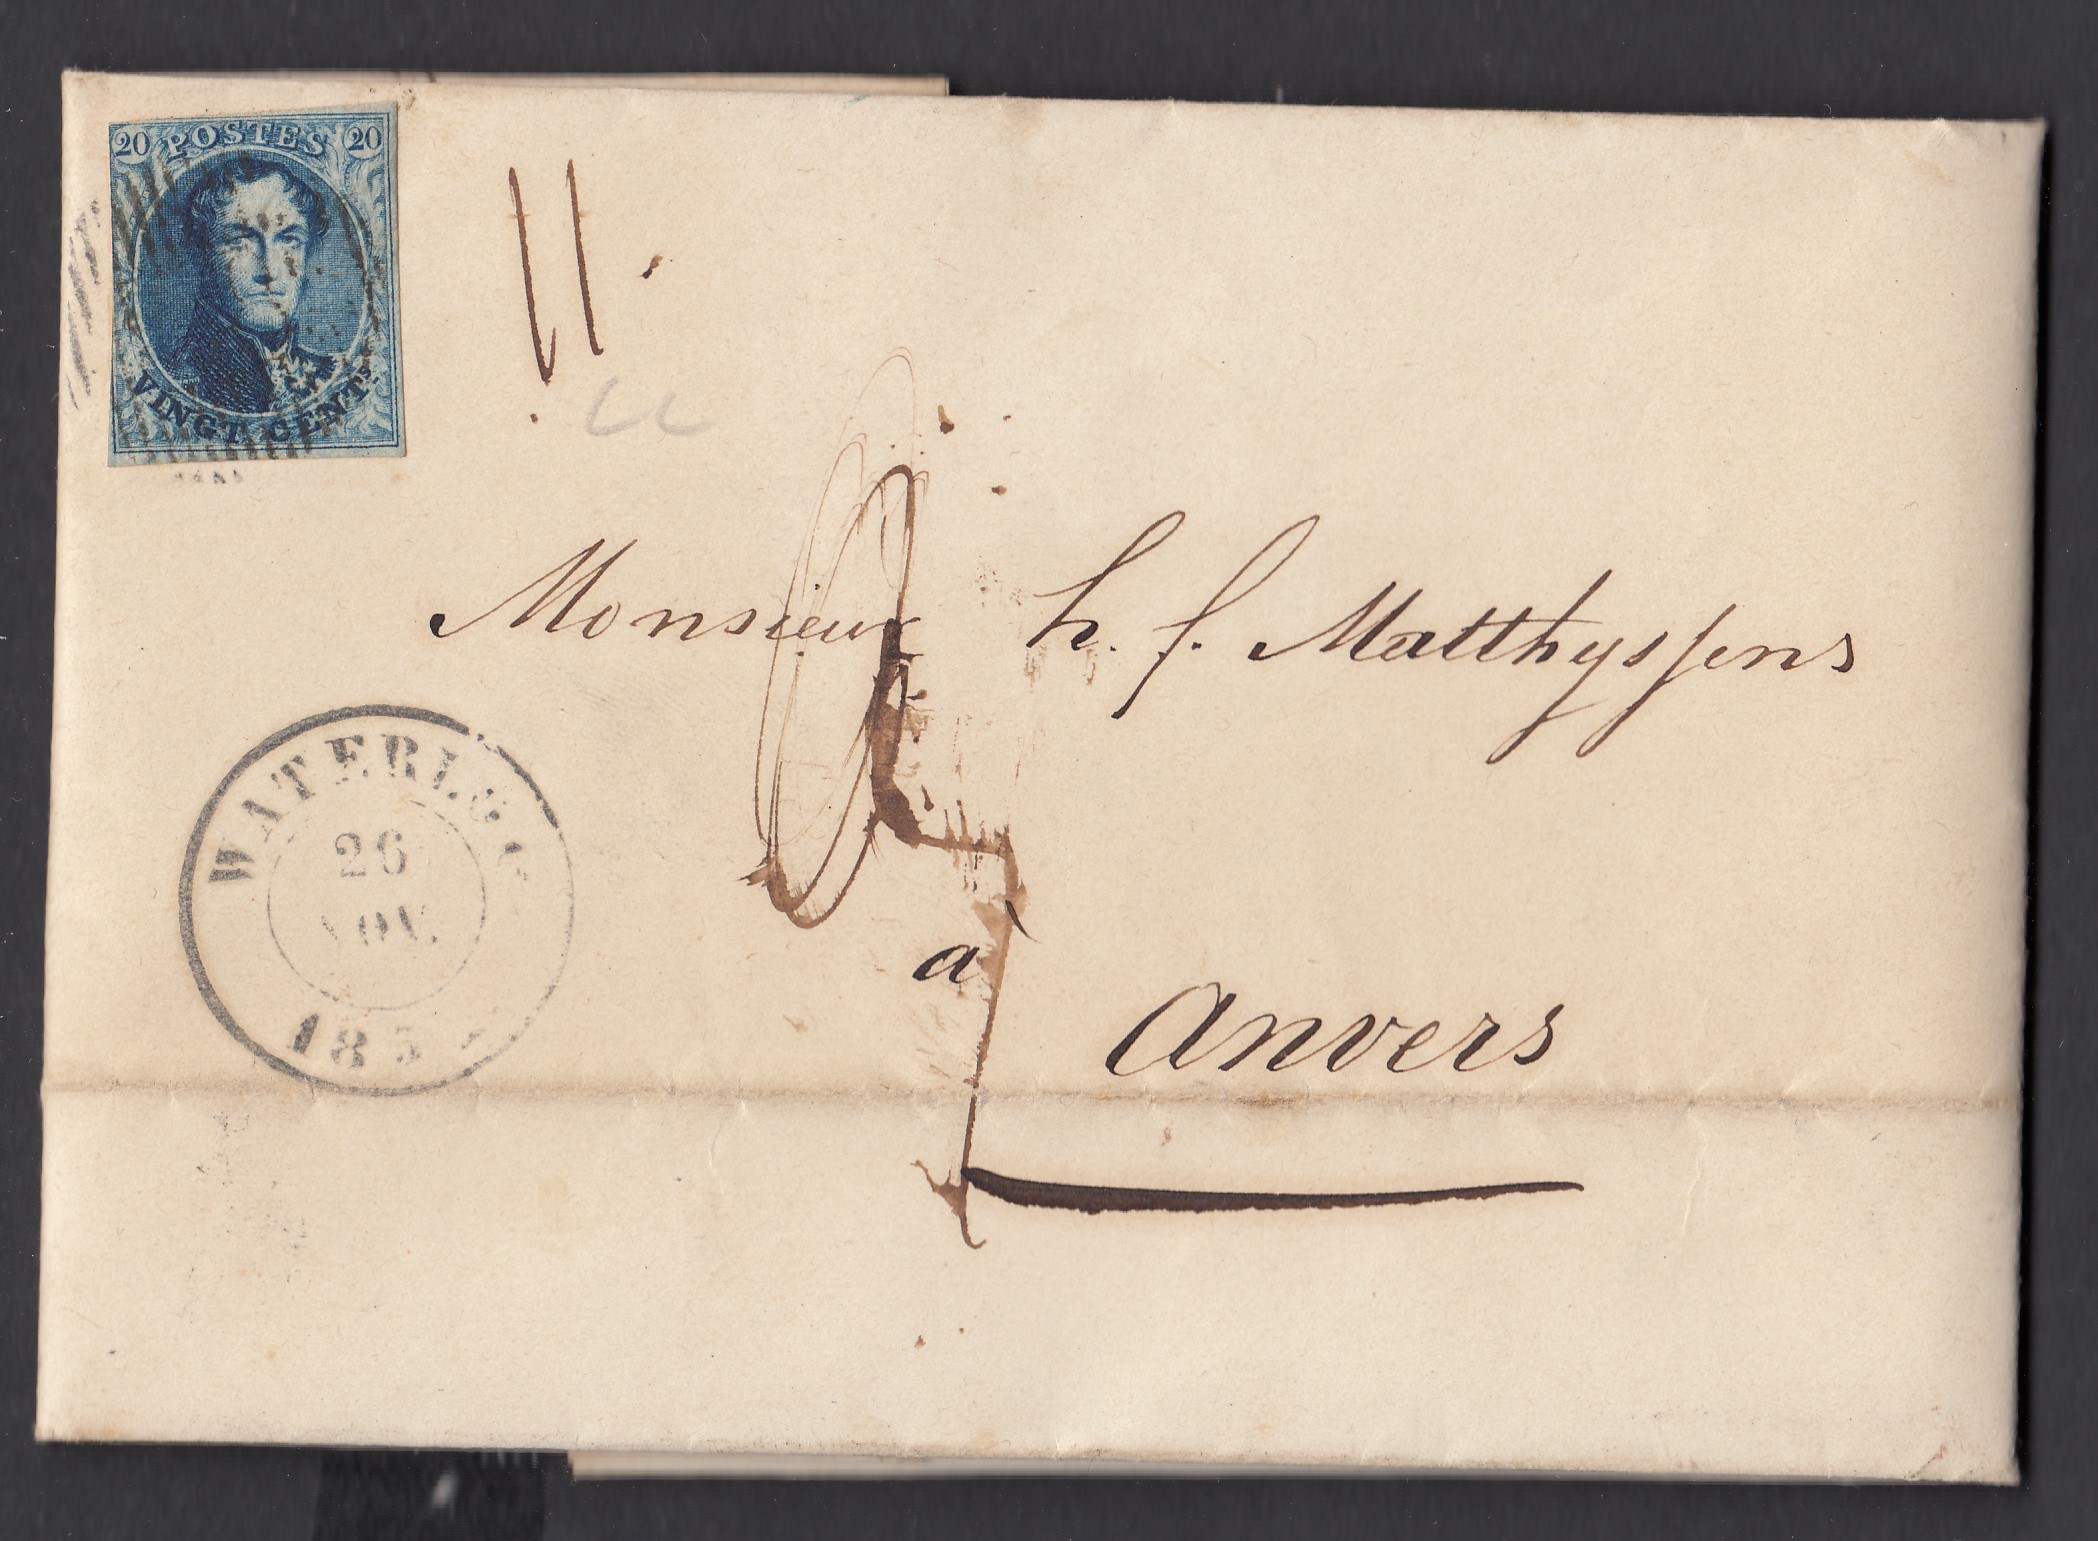 20 POSTES 20
VINGT CENTS.
11
Monsieur h. f. Matthyssens
WATERLOO
26
NOV.
185
à
Anvers